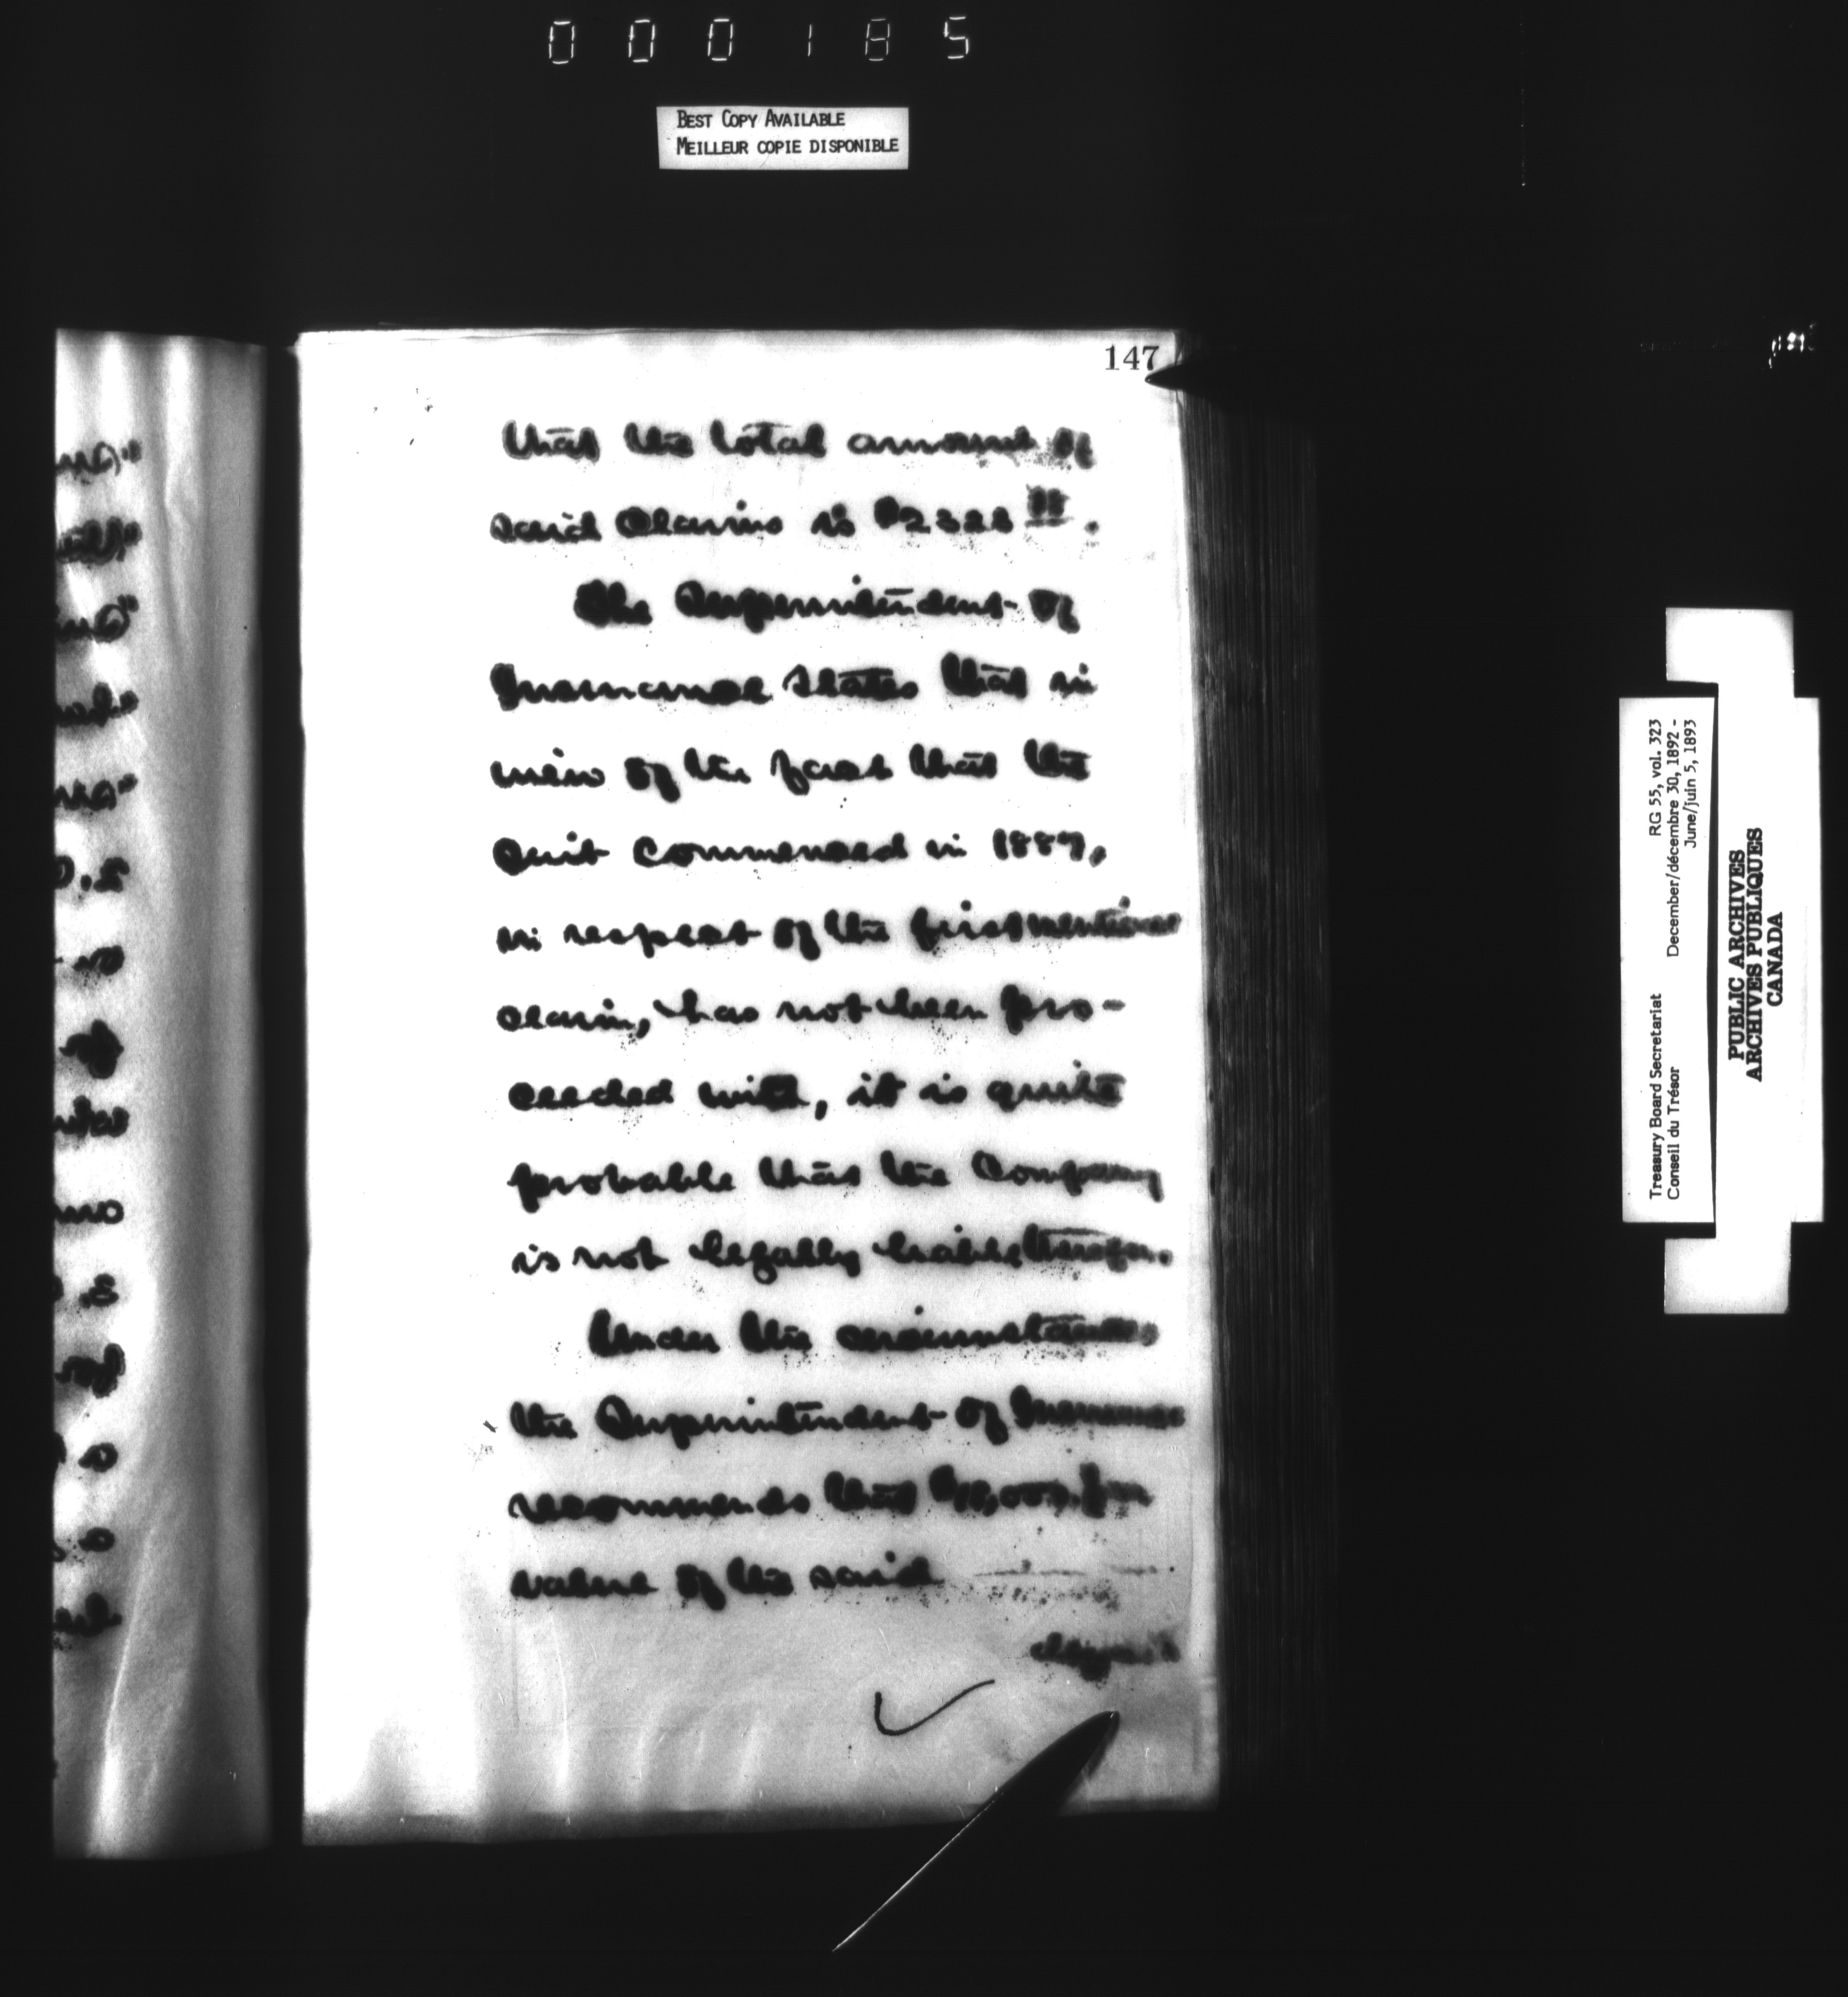 000185
BEST COPY AVAILABLE
MEILLEUR COPIE DISPONIBLE
147
that the total amount of
said claims is $2328
The Superintendent of
Insurance states that in
view of the fact that the
suit commenced in 1887,
in respect of the first mentioned
claim, has not been pro-
ceeded with, it is quite
probable that the Company
is not legally liable therefor.
Under the circumstances
the Superintendent of Insurance
recommends that
value of the said
RG 55, vol. 323
December/décembre 30, 1892 -
June/juin 5, 1893
Treasury Board Secretariat
Conseil du Trésor
PUBLIC ARCHIVES
ARCHIVES PUBLIQUES
CANADA